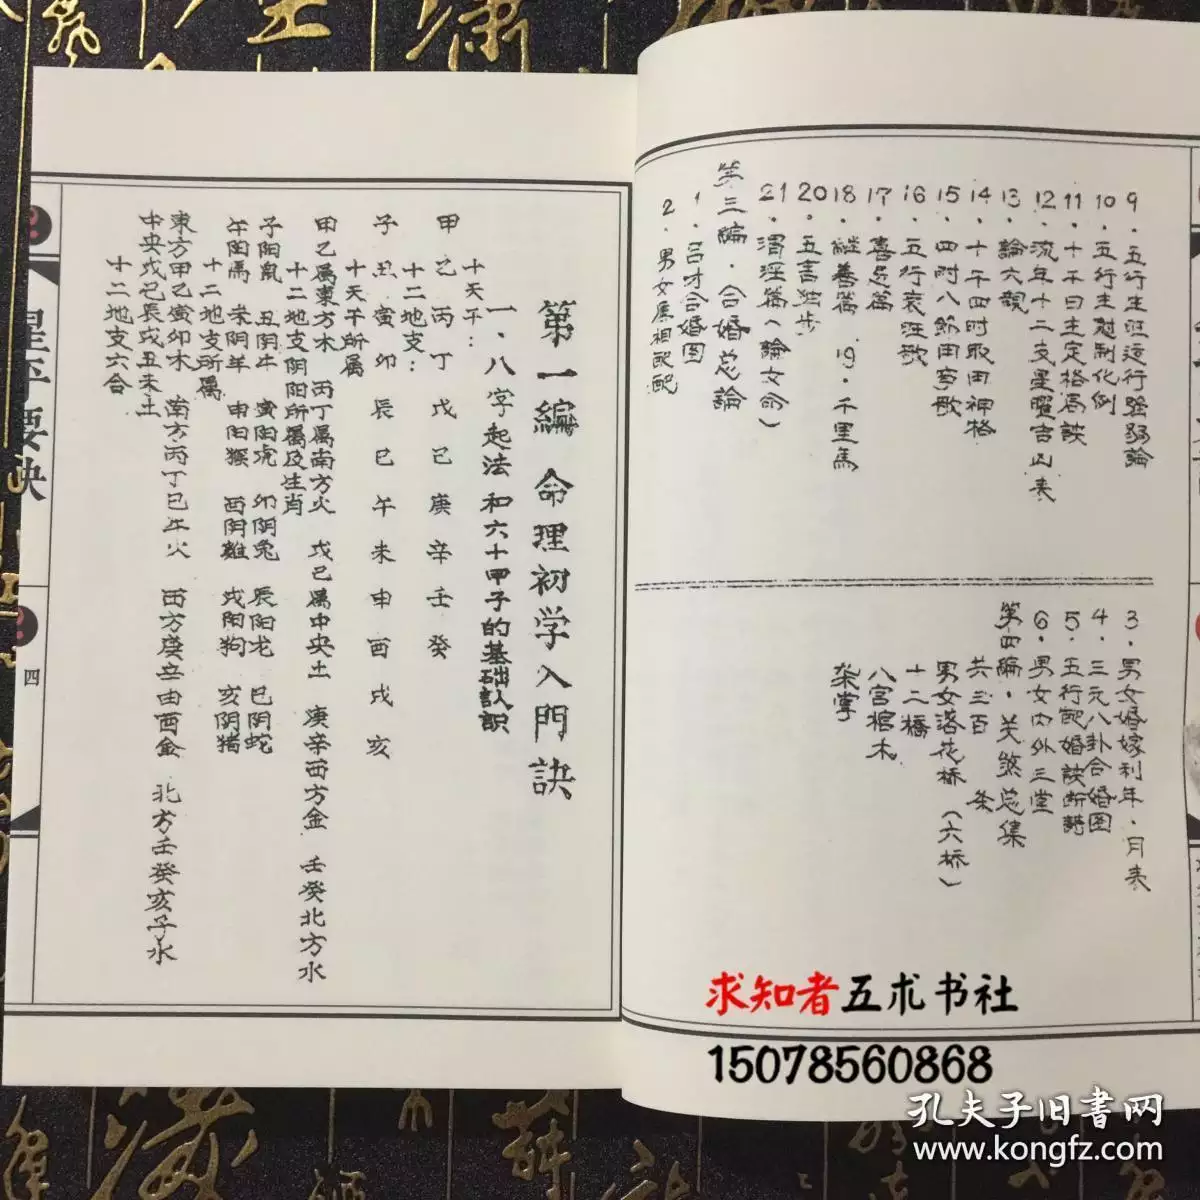 9．五行生旺运行强弱論
10．五行生尅制化例
11．十干日主定格局訣
12．流年十二支星曜吉凶表
13．論六親
14．十干四时取用神格
15．四时八節用事歌
16．五行衰旺歌
17．喜忌篇
18．継善篇　19．千里馬
20．五言独步
21．渭泾篇（論女命）
第三编．合婚总論
1．吕才合婚图
2．男女屬相配配
3．男女婚嫁利年．月表
4．三元八卦合婚图
5．五行配婚訣断詩
6．男女内外三堂
第四編．关煞总集
共三百　条
男女落花桥（六桥）
十二橋
八宫棺木
柴掌
第一編 命理初学入門訣
一．八字起法和六十甲子的基础认识
十天干：
甲乙丙丁戊己庚辛壬癸
十二地支：
子丑寅卯辰巳午未申酉戌亥
十天干所属
甲乙属東方木　丙丁属南方火　戊己属中央土　庚辛西方金　壬癸北方水
十二地支阴阳所属及生肖
子阳鼠　丑阴牛　寅阳虎　卯阴兔　辰阳龙　巳阴蛇
午阳馬　未阴羊　申阳猴　酉阴雞　戌阳狗　亥阴猪
十二地支所属
東方甲乙寅卯木　南方丙丁巳午火　西方庚辛申酉金　北方壬癸亥子水
中央戊己辰戌丑未土
十二地支六合
星平要訣
四
求知者五术书社
15078560868
孔夫子旧書网
www.kongfz.com